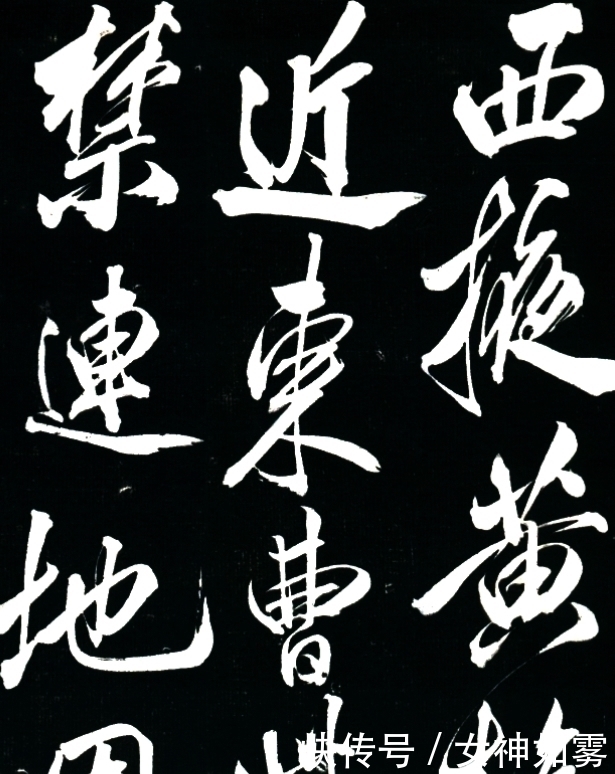 西掖黄
近東曹
禁連地
快传号 / 女神如雾